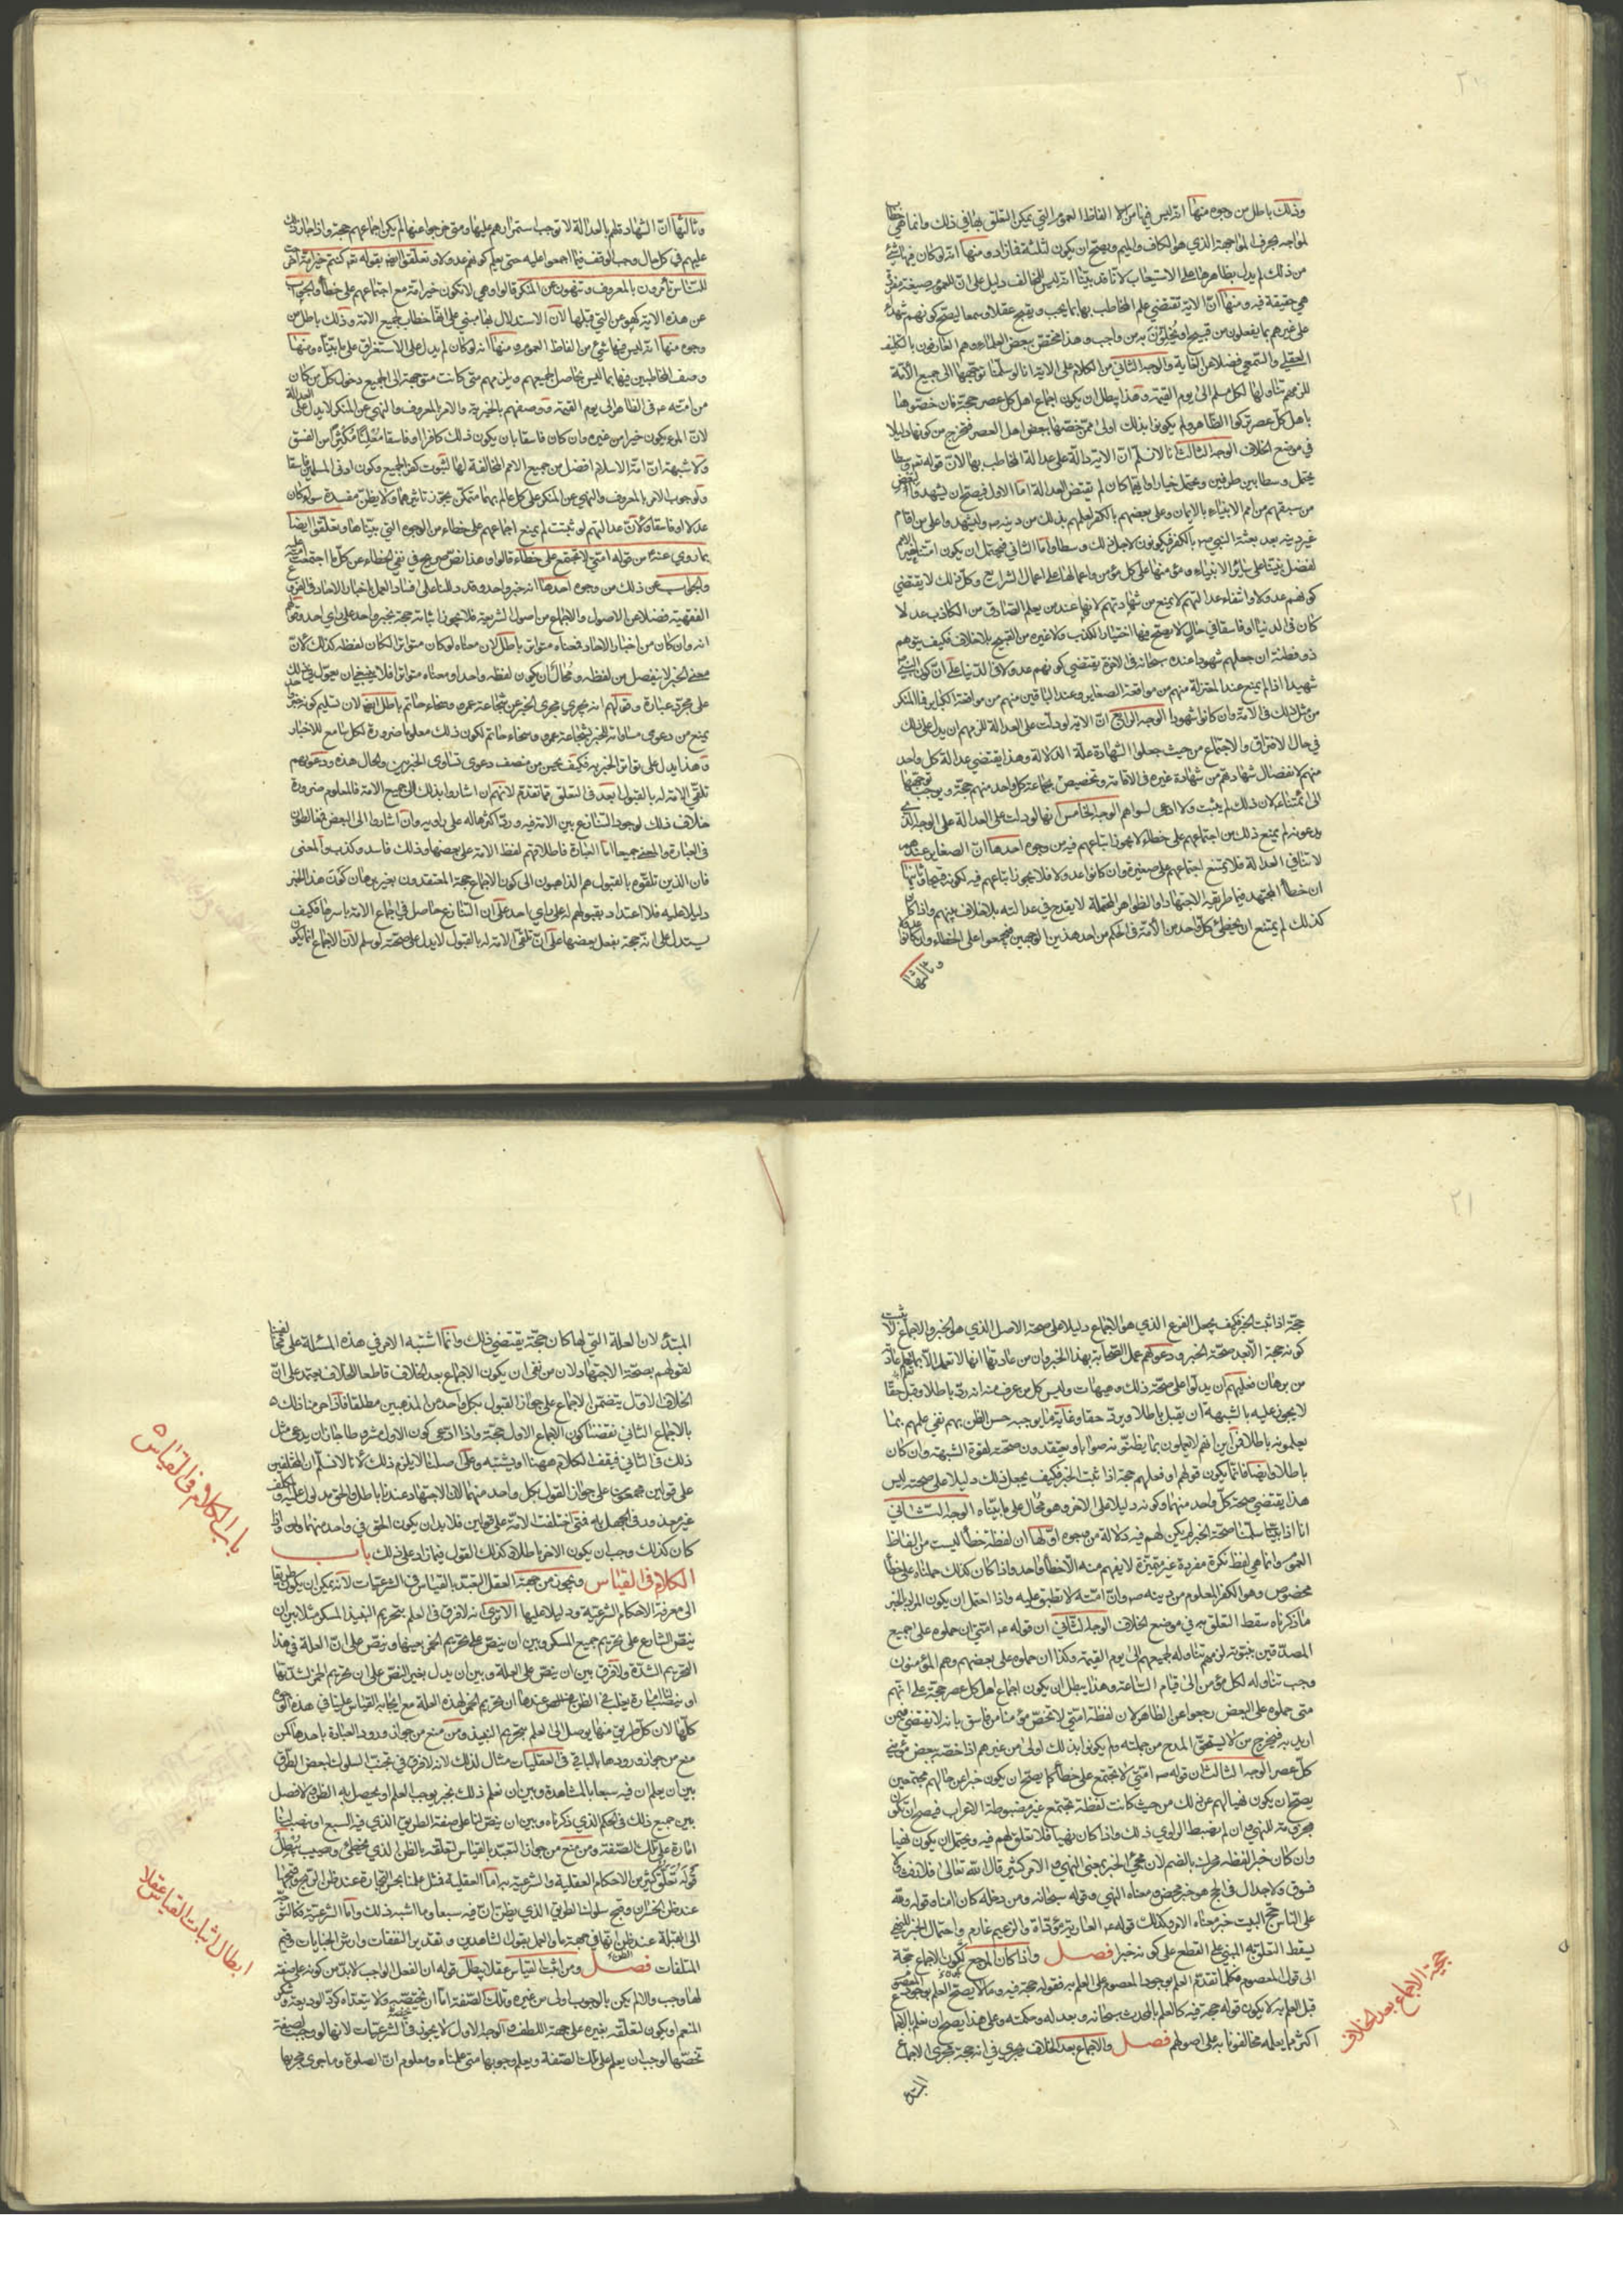 ٢٠
وذلك باطل من وجوه منها انه ليس فيها من الفاظ العموم التي يمكن التعلق بها في ذلك وانما هي خطاب
لمواجه بحرف المواجهة الذي هو الكاف والميم ويصح ان يكون لثلثة فما زاد ومنها انه لو كان فيها شيء
من ذلك لم يدل بظاهرها على الاستيعاب لانا قد بينا انه ليس للمخالف دليل على ان للعموم صيغة مفردة
هي حقيقة فيه ومنها ان الاية تقتضي علم المخاطب بها بما يجب ويقبح عقلا وسمعا ليصح كونهم شهداء
على غيرهم بما يفعلون من قبيح او يخلون به من واجب وهذا مختص ببعض العلماء وهم العارفون بالتكليف
العقلي والسمعي فضلا عن والوجه الثاني من الكلام على الاية انا لو سلمنا توجهها الى جميع الأمة
للزمهم تناولها لكل مسلم الى يوم القيمة وهذا يبطل ان يكون اجماع اهل كل عصر حجة فان خصوها
باهل كل عصر تركوا الظاهر ولم يكونوا بذلك اولى ممن خصها ببعض اهل العصر فتخرج من كونها دليلا
في موضع الخلاف الوجه الثالث انا لا نسلم ان الاية دالة على عدالة المخاطب بها لان قوله تع وسطا
يحتمل وسطا بين طرفين ويحتمل خيارا وايهما كان لم يقتض العدالة اما الاول فيصح ان ليشهدوا
من سبقهم من امم الانبياء بالايمان وعلى بعضهم بالكفر لعلمهم بذلك من دينه ص وليشهدوا على من اقام
غير دينه بعد بعثة النبي ص بالكفر فيكونون لاجل ذلك وسطا واما الثاني فيحتمل ان يكون امتنا خير الامم
لفضل نبينا على سائر الانبياء ومؤمنها على كل مؤمن واعمالها على اعمال الشرايع وكل ذلك لا يقتضي
كونهم عدولا وانتفاء عدالتهم لا يمنع من شهادتهم لانهم عند من يعلم الصادق من الكاذب عدلا
كان في الدنيا او فاسقا في حال لا يصح فيها اختيار الكذب ولا غيره من القبيح بلا خلاف فكيف يتوهم
ذو فطنة ان جعلهم شهودا عنده سبحانه في الاخرة يقتضي كونهم عدولا في الدنيا على ان كون النبي ص
شهيدا اذا لم يمنع عند المعتزلة منهم من مواقعة الصغاير وعند الباقين منهم من مواقعة الكباير فما المنكر
من مثل ذلك في الامة وان كانوا شهودا الوجه الرابع ان الاية لو دلت على العدالة للزمهم ان يدل على ذلك
في حال الافتراق والاجتماع من حيث جعلوا الشهادة علة الدلالة وهذا يقتضي عدالة كل واحد
منهم لانفصال شهادتهم من شهادة غيره في الاقامة وتخصيص بجماعة كل واحد منهم حجة ويوجب توجهها
الى ائمتنا ع لان ذلك لم يثبت ولا ادعى لسواهم الوجه الخامس انها لو دلت على العدالة على الوجه الذي
يدعونه لم يمنع ذلك من اجتماعهم على خطاء لا يجوز اتباعهم فيه من وجوه احدها ان الصغاير عندهم
لا تنافي العدالة فلا يمتنع اجتماعهم على صغيرة وان كانوا عدولا فلا يجوز اتباعهم فيه لكونه قبيحا وثانيها
ان خطأ المجتهد فيما طريقه الاجتهاد او الظواهر المحتملة لا يقدح في عدالته بلا خلاف بينهم واذا كان
كذلك لم يمتنع ان يخطئ كل واحد من الأمة في الحكم من احد هذين الوجهين فيجمعوا على الخطاء وان كانوا عدولا
وثالثها
وثالثها ان الشهادة لهم بالعدالة لا توجب استمرارهم عليها ومتى خرجوا عنها لم يكن اجماعهم حجة واذا جاز ذلك
عليهم في كل حال وجب الوقف فيما اجمعوا عليه حتى يعلم كونهم عدولا وتعلقوا ايضا بقوله تع كنتم خير امة اخرجت
للناس تأمرون بالمعروف وتنهون عن المنكر قالوا وهي لا تكون خير امة مع اجتماعهم على خطأ والجواب
عن هذه الاية كهو عن التي قبلها لان الاستدلال بها مبني على انها خطاب لجميع الامة وذلك باطل من
وجوه منها انه ليس فيها شئ من الفاظ العموم ومنها انه لو كان لم يدل على الاستغراق على ما بيناه ومنها
وصف المخاطبين فيها بما ليس بحاصل لجميعهم ويلزمهم متى كانت متوجهة الى الجميع دخول كل من كان
من امته ص في الظاهر الى يوم القيمة ووصفهم بالخيرية والامر بالمعروف والنهي عن المنكر لا يدل على العدالة
لان المرء يكون خيرا من غيره وان كان فاسقا بان يكون ذلك كافرا او فاسقا معلنا مكثرا من الفسق
ولا شبهة ان امة الاسلام افضل من جميع الامم المخالفة لها لثبوت كفر الجميع وكون اوفى المسلمين فاسقا
ولوجوب الامر بالمعروف والنهي عن المنكر على كل عالم بهما متمكن يجوز تاثيرهما ولا يظن مفسدة سواء كان
عدلا او فاسقا ولان عدالتهم لو ثبتت لم يمنع اجماعهم على خطاء من الوجوه التي بيناها وتعلقوا ايضا
بما روي عنه ص من قوله امتي لا تجتمع على خطاء قالوا وهذا نص صريح في نفي الخطاء عن كل ما اجتمعت عليه
والجواب عن ذلك من وجوه احدها انه خبر واحد وقد دللنا على فساد العمل باخبار الاحاد في الفروع
الفقهية فضلا عن الاصول والاجماع من اصول الشريعة فلا يجوز اثباته حجة بخبر واحد على راي احد وقولهم
انه وان كان من اخبار الاحاد فمعناه متواتر باطل لان معناه لو كان متواترا لكان لفظه كذلك لان
معنى الخبر لا ينفصل من لفظه ومحال ان يكون لفظه واحدا ومعناه متواترا فلا
على مجرد عبارة وقولهم انه يجري مجرى الخبر عن شجاعة عمرو وسخاء حاتم باطل ايضا لان تسليم كونه خبر واحد
يمنع من دعوى مساواته للخبر بشجاعة عمرو وسخاء حاتم لكون ذلك معلوما ضرورة لكل سامع للاخبار
وهذا يدل على تواتر الخبر به فكيف يحسن من منصف دعوى تساوي الخبرين والحال هذه ودعوىهم
تلقي الامة له بالقبول ابعد في التعلق مما تقدم لانهم ان اشاروا بذلك الى جميع الامة فالمعلوم ضرورة
خلاف ذلك لوجود التنازع بين الامة فيه ورد اكثرها له على راويه وان اشاروا الى البعض فغالطون
في العبارة والمعنى جميعا اما العبارة فاطلاقهم لفظ الامة على بعضها وذلك فاسد وكذب واما المعنى
فان الذين تلقوه بالقبول هم الذاهبون الى كون الاجماع حجة المعتقدون بغير برهان كون هذا الخبر
دليلا عليه فلا اعتداد بقبولهم له على راي احد على ان التنازع حاصل في اجماع الامة باسرها فكيف
يستدل على انه حجة بفعل بعضها على ان تلقي الامة له بالقبول لا يدل على صحته لو سلم لان الاجماع انما يكون
٢١
حجة اذا ثبت الخبر فكيف يجعل الفرع الذي هو الاجماع دليلا على صحة الاصل الذي هو الخبر والاجماع لا يثبت
كونه حجة الا بعد صحة الخبر ودعوىهم عمل الصحابة بهذا الخبر وان من عادتها انها لا تعمل الا بما تعلم
من برهان فعليهم ان يدلوا على صحة ذلك وهيهات وليس كل من عرف منه انه رد باطلا وقبل حقا
لا يجوز عليه بالشبهة ان يقبل باطلا ويرد حقا وغاية ما يوجبه حسن الظن بهم نفي علمهم بما
يعلمونه باطلا فمن اين انهم لا يعملون بما يظنونه صوابا ويعتقدون صحته لقوة الشبهة وان كان
باطلا وايضا فانما يكون قولهم او فعلهم حجة اذا ثبت الخبر فكيف يجعل ذلك دليلا على صحته اليس
هذا يقتضي صحة كل واحد منهما وكونه دليلا على الاخر وهو محال على ما بيناه الوجه الثاني
انا اذا سلمنا صحة الخبر لم يكن لهم فيه دلالة من وجوه اولها ان لفظة خطأ ليست من الفاظ
العموم وانما هي لفظ نكرة مفردة غير متميزة لا يفهم منه الا خطأ واحد واذا كان كذلك حملناه على خطأ
مخصوص وهو الكفر المعلوم من دينه ص وان امته لا تطبق عليه واذا احتمل ان يكون المراد بالخبر
ما ذكرناه سقط التعلق به في موضع الخلاف الوجه الثاني ان قوله ص امتي ان حملوه على جميع
المصدقين بنبوته لزمهم تناوله لجميعهم الى يوم القيمة وكذا ان حملوه على بعضهم وهم المؤمنون
وجب تناوله لكل مؤمن الى قيام الساعة وهذا يبطل ان يكون اجماع اهل كل عصر حجة على انهم
متى حملوه على البعض رجعوا عن الظاهر لان لفظة امتي لا تخص مؤمنا من فاسق بانه لا يقتضي
اريد به فيخرج من لا يستحق المدح من جملته ولم يكونوا بذلك اولى من غيرهم اذا خصه ببعض مؤمني
كل عصر الوجه الثالث ان قوله ص امتي لا تجتمع على خطأ كما يصح ان يكون خبرا عن حالهم مجتمعين
يصح ان يكون نهيا لهم عن ذلك من حيث كانت لفظة تجتمع غير مضبوطة الاعراب فيصح ان يكون
مجزومة للنهي وان لم يضبط الراوي ذلك واذا كان نهيا فلا تعلق لهم فيه ويحتمل ان يكون نهيا
وان كان خبر اللفظه محركة بالضم لان مجئ الخبر بمعنى النهي والامر كثير قال الله تعالى فلا رفث ولا
فسوق ولا جدال في الحج هو خبر محض ومعناه النهي وقوله سبحانه ومن دخله كان امنا وقوله ولله
على الناس حج البيت خبر معناه الامر وكذلك قوله ص العارية مؤداة والزعيم غارم واحتمال الخبر للنهي
يسقط التعلق به المبني على القطع على كونه خبرا فصل واذا كان المرجع بكون الاجماع حجة
الى قول المعصوم فكلما تقدم العلم بوجود المعصوم على العلم به فقوله حجة فيه وما لا يصح العلم بوجود المعصوم
قبل العلم به لا يكون قوله حجة فيه كالعلم بالمحدث سبحانه وبعدله وحكمته وعلى هذا يصح ان نعلم بالاجماع
اكثر مما يعلمه مخالفونا به على اصولهم فصل والاجماع بعد الخلاف يجري في انه حجة مجرى الاجماع
حجية الاجماع بعد الخلاف
المبتدأ
المبتدأ لان العلة التي لها كان حجة يقتضي ذلك وانما اشتبه الامر في هذه المسئلة على مخالفينا
لقولهم بصحة الاجتهاد لان من نفى ان يكون الاجماع بعد الخلاف قاطعا للخلاف يعتمد على ان
الخلاف الاول يتضمن الاجماع على جواز القبول بكل واحد من المذهبين مطلقا فاذا حرمنا ذلك
بالاجماع الثاني نقضنا كون الاجماع الاول حجة واذا ادعى كون الاول مشروطا جاز ان يدعى مثل
ذلك في الثاني فيقف الكلام ههنا ويشتبه وعلى اصلنا لا يلزم ذلك لانا لا نسلم ان المختلفين
على قولين مجمعون على جواز القول بكل واحد منهما لان الاجتهاد عندنا باطل والحق مدلول عليه والمكلف
غير معذور في الجهل به فمتى اختلفت الامة على قولين فلا بد ان يكون الحق في واحد منهما واذا
كان كذلك وجب ان يكون الاخر باطلا وكذلك القول فيما زاد على ذلك باب
الكلام في القياس ويجوز من جهة العقل التعبد بالقياس في الشرعيات لانه يمكن ان يكون طريقا
الى معرفة الاحكام الشرعية ودليلا عليها الا ترى انه لا فرق في العلم بتحريم النبيذ المسكر مثلا بين ان
ينص الشارع على تحريم جميع المسكر وبين ان ينص على تحريم الخمر بعينها وينص على ان العلة في هذا
التحريم الشدة ولا فرق بين ان ينص على العلة وبين ان يدل بغير النص على ان تحريم الخمر لشدتها
او ينصب لنا امارة يغلب في الظن عندها ان تحريم الخمر لهذه العلة مع ايجابه القياس علينا في هذه الوجوه
كلها لان كل طريق منها يوصل الى العلم بتحريم النبيذ ومن منع من جواز ورود العبادة باحدها كمن
منع من جواز ورودها بالباقي وفي العقليات مثال لذلك لانه لا فرق في تجنب السلوك لبعض الطرق
بين ان يعلم ان فيه سبعا بالمشاهدة وبين ان نعلم ذلك بخبر يوجب العلم او يحصل به الظن ولا فصل
بين جميع ذلك في الحكم الذي ذكرناه وبين ان ينص لنا على صفة الطريق الذي فيه السبع او ينصب لنا
امارة على تلك الصفة ومن منع من جواز التعبد بالقياس لتعلقه بالظن الذي يخطئ ويصيب يبطل
قوله تعلق كثير من الاحكام العقلية والشرعية به اما العقلية فمثل علمنا بحسن التجارة عند ظن الربح وقبحها
عند ظن الخسران وقبح سلوكنا الطريق الذي يظن ان فيه سبعا وما اشبه ذلك واما الشرعية فكالتوجه
الى القبلة عند ظن انها في جهة ما والعمل بقول الشاهدين وتقدير النفقات وارش الجنايات وقيم
المتلفات فصل ومن اثبت القياس عقلا يبطل قوله ان الفعل الواجب لا بد من كونه على صفة
لها وجب والا لم يكن بالوجوب اولى من غيره وتلك الصفة اما ان تختصه ولا يتعداه كرد الوديعة وشكر
المنعم او يكون لتعلقه بغيره على جهة اللطف والوجه الاول لا يجوز في الشرعيات لانها لو وجبت لصفة
تخصها لوجب ان يعلم على تلك الصفة ويعلم وجوبها متى علمناه ومعلوم ان الصلوة وما جرى مجراها
باب الكلام في القياس
ابطال اثبات القياس عقلا